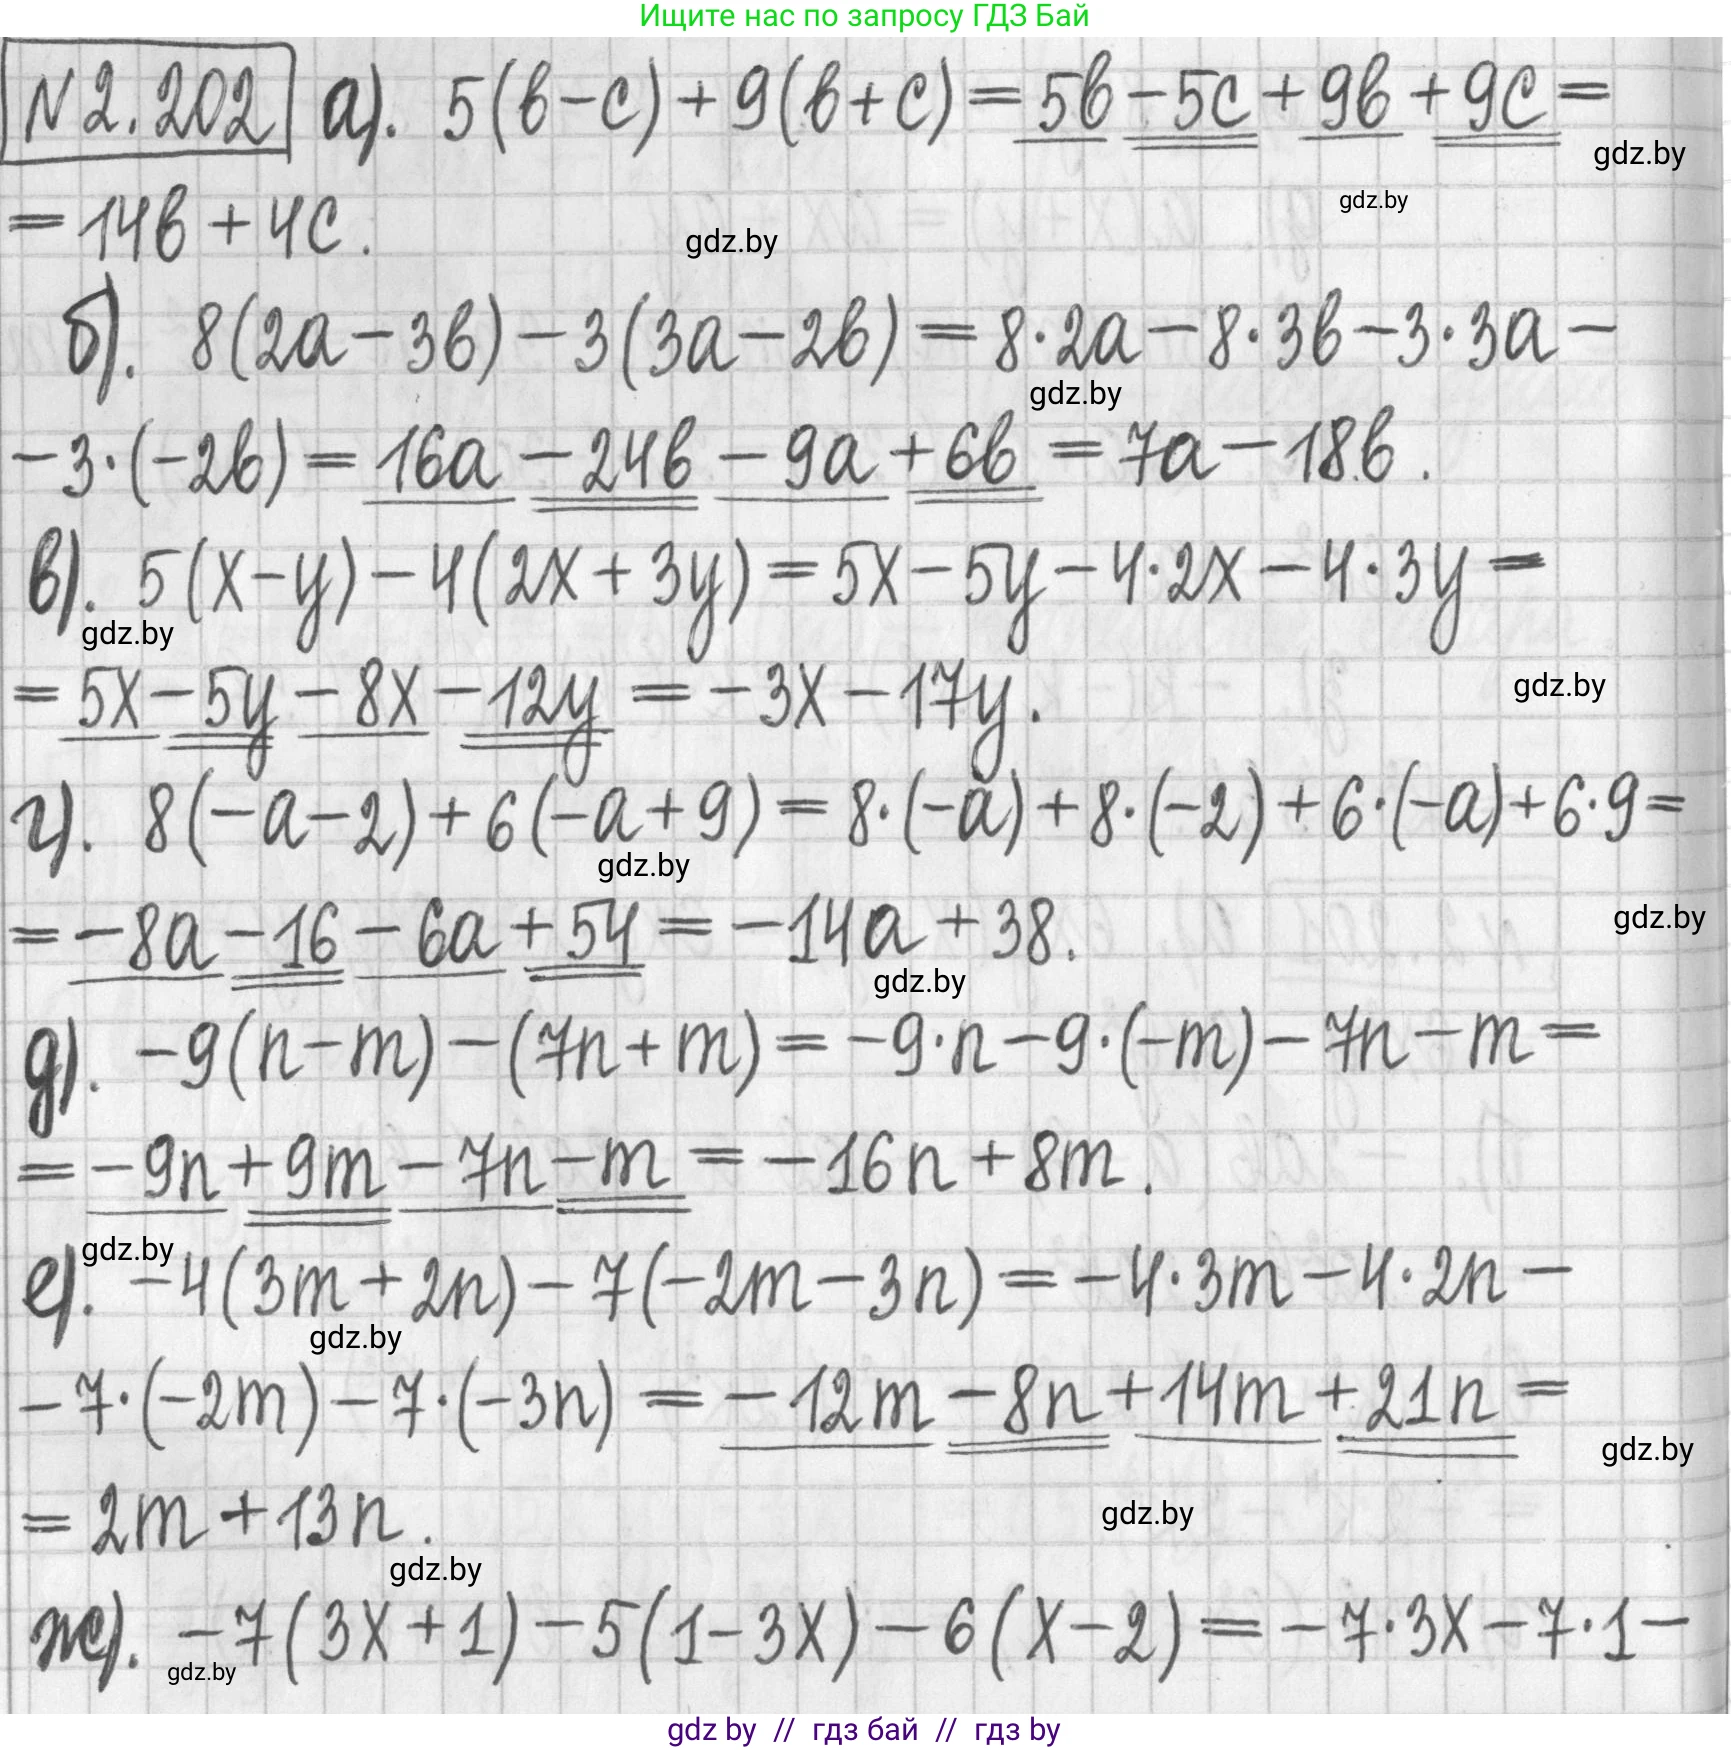 Ищите нас по запросу ГДЗ Бай
N2.202 а). 5(b-c)+9(b+c)=5b-5c+9b+9c=
gdz.by
gdz.by
=14b+4c.
gdz.by
б). 8(2a-3b)-3(3a-2b)=8·2a-8·3b-3·3a-
gdz.by
-3·(-2b)=16a-24b-9a+6b=7a-18b.
в). 5(x-y)-4(2x+3y)=5x-5y-4·2x-4·3y=
gdz.by
=5x-5y-8x-12y=-3x-17y.
gdz.by
г). 8(-a-2)+6(-a+9)=8·(-a)+8·(-2)+6·(-a)+6·9=
gdz.by
=-8a-16-6a+54=-14a+38.
gdz.by
gdz.by
д). -9(n-m)-(7n+m)=-9·n-9·(-m)-7n-m=
=-9n+9m-7n-m=-16n+8m.
gdz.by
е). -4(3m+2n)-7(-2m-3n)=-4·3m-4·2n-
gdz.by
-7·(-2m)-7·(-3n)=-12m-8n+14m+21n=
gdz.by
=2m+13n.
gdz.by
gdz.by
ж). -7(3x+1)-5(1-3x)-6(x-2)=-7·3x-7·1-
gdz.by
gdz by // гдз бай // гдз by